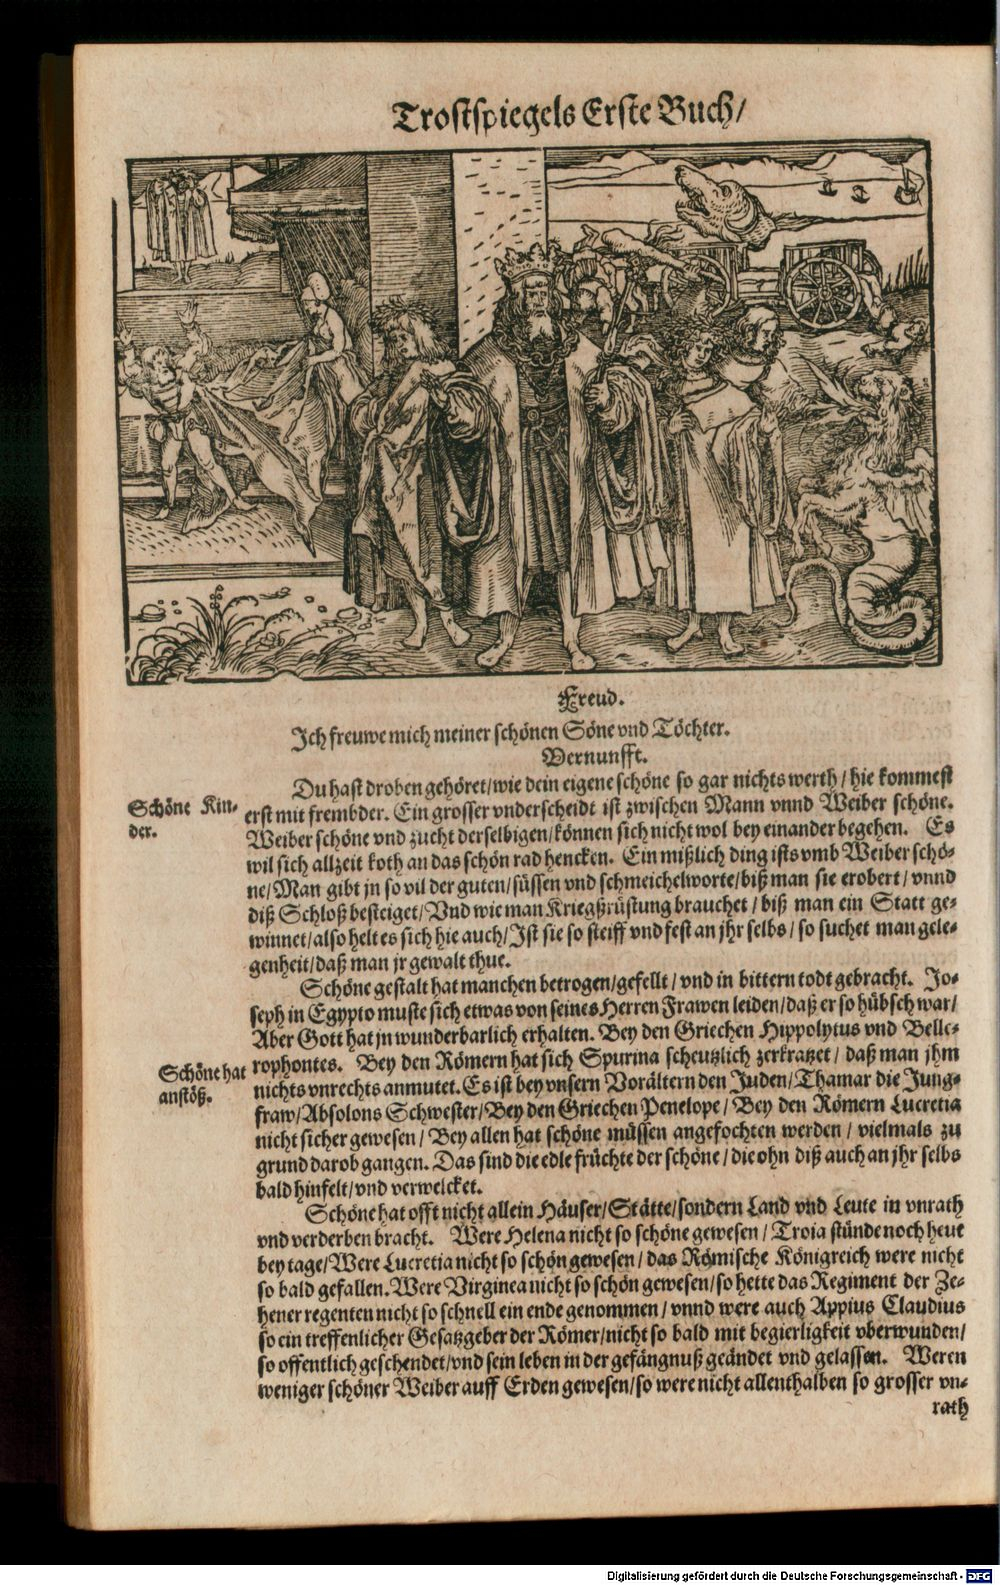 Trostspiegels Erste Buch/
Freud.
Ich freuwe mich meiner schönen Söne vnd Töchter.
Vernunfft.
Du hast droben gehöret/wie dein eigene schöne so gar nichts werth/hie kommest
Schöne Kin-
der.
erst mit frembder. Ein grosser vnderscheidt ist zwischen Mann vnnd Weiber schöne.
Weiber schöne vnd zucht derselbigen/können sich nicht wol bey einander begehen. Es
wil sich allzeit koth an das schön rad hencken. Ein mißlich ding ists vmb Weiber schö-
ne/Man gibt jn so vil der guten/süssen vnd schmeichelworte/biß man sie erobert/vnnd
diß Schloß besteiget/Vnd wie man Kriegßrüstung brauchet/biß man ein Statt ge-
winnet/also helt es sich hie auch/Ist sie so steiff vnd fest an jhr selbs/so suchet man gele-
genheit/daß man jr gewalt thue.
Schöne gestalt hat manchen betrogen/gefellt/vnd in bittern todt gebracht. Jo-
seph in Egypto muste sich etwas von seines Herren Frawen leiden/daß er so hübsch war/
Aber Gott hat jn wunderbarlich erhalten. Bey den Griechen Hippolytus vnd Belle-
rophontes. Bey den Römern hat sich Spurina scheutzlich zerkratzet/daß man jhm
Schöne hat
anstöß.
nichts vnrechts anmutet. Es ist bey vnsern Vorältern den Juden/Thamar die Jung-
fraw/Absolons Schwester/Bey den Griechen Penelope/Bey den Römern Lucretia
nicht sicher gewesen/Bey allen hat schöne müssen angefochten werden/vielmals zu
grund darob gangen. Das sind die edle früchte der schöne/die ohn diß auch an jhr selbs
bald hinfelt/vnd verwelcket.
Schöne hat offt nicht allein Häuser/Stätte/sondern Land vnd Leute in vnrath
vnd verderben bracht. Were Helena nicht so schöne gewesen/Troia stünde noch heut
bey tage/Were Lucretia nicht so schön gewesen/das Römische Königreich were nicht
so bald gefallen. Were Virginea nicht so schön gewesen/so hette das Regiment der Ze-
hener regenten nicht so schnell ein ende genommen/vnnd were auch Appius Claudius
so ein treffenlicher Gesatzgeber der Römer/nicht so bald mit begierligkeit vberwunden/
so offentlich geschendet/vnd sein leben in der gefängnuß geändet vnd gelassen. Weren
weniger schöner Weiber auff Erden gewesen/so were nicht allenthalben so grosser vn-
rath
Digitalisierung gefördert durch die Deutsche Forschungsgemeinschaft - DFG